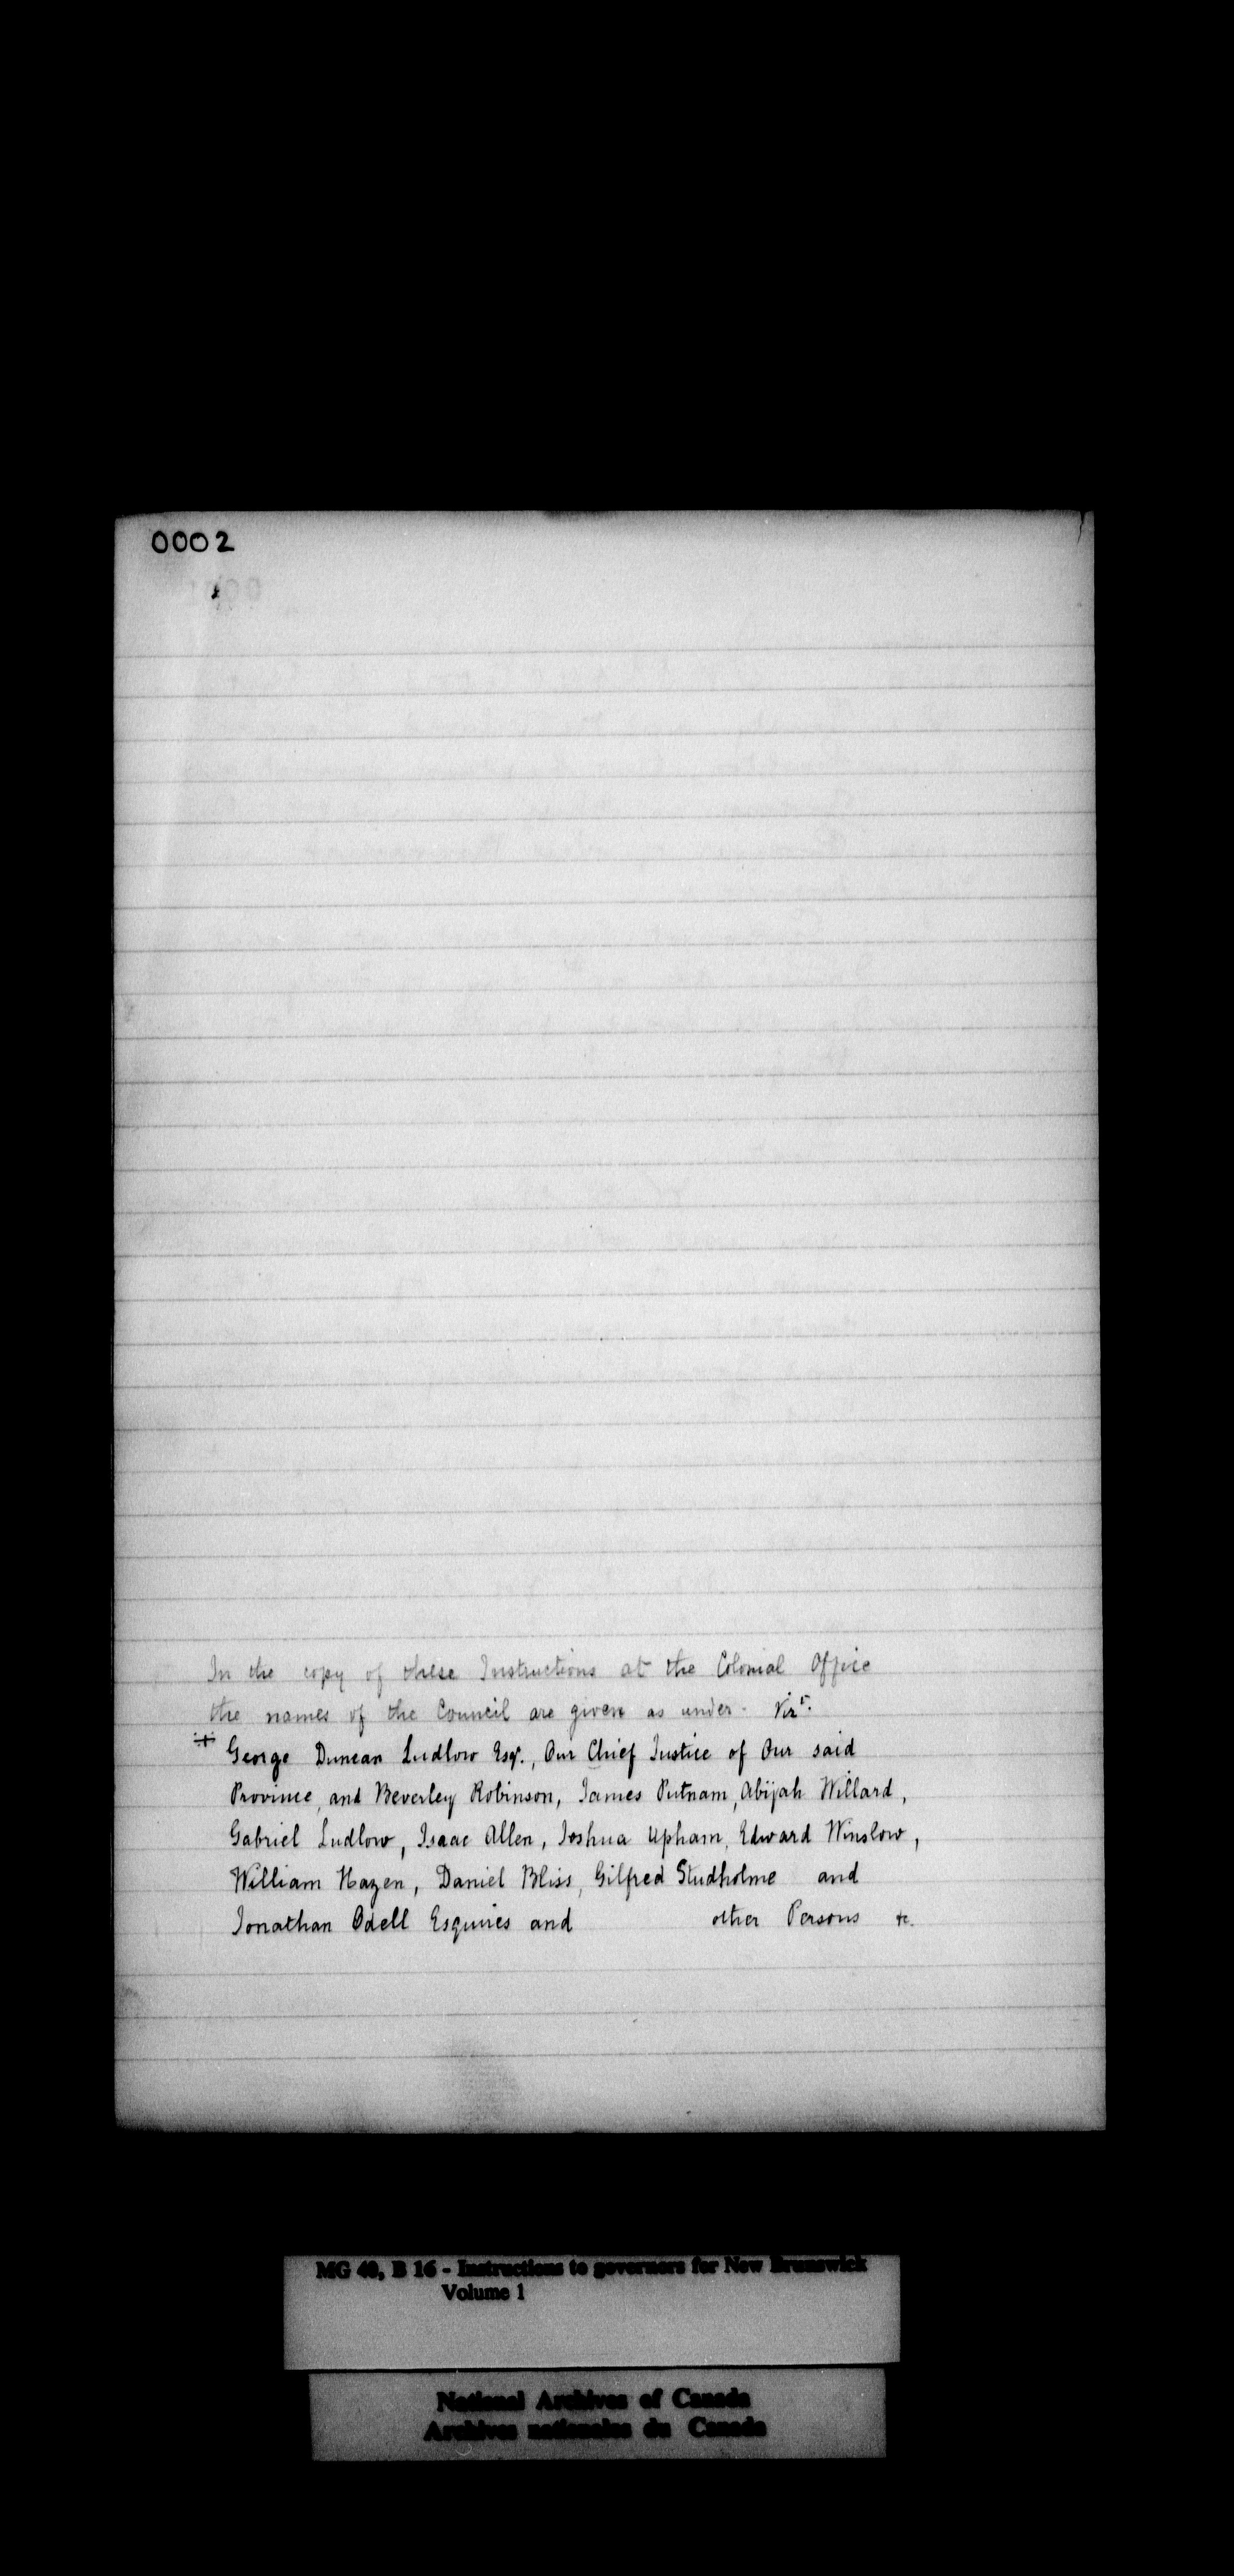 0002
In the copy of these Instructions at the Colonial Office
the names of the Council are given as under - Vizt.
George Duncan Ludlow Esqr., Our Chief Justice of Our said
Province, and Beverley Robinson, James Putnam, Abijah Willard,
Gabriel Ludlow, Isaac Allen, Joshua Upham, Edward Winslow,
William Hazen, Daniel Bliss, Gilfred Studholme and
Jonathan Odell Esquires and other Persons &c.
MG 40, B 16 - Instructions to governors for New Brunswick
Volume 1
National Archives of Canada
Archives nationales du Canada